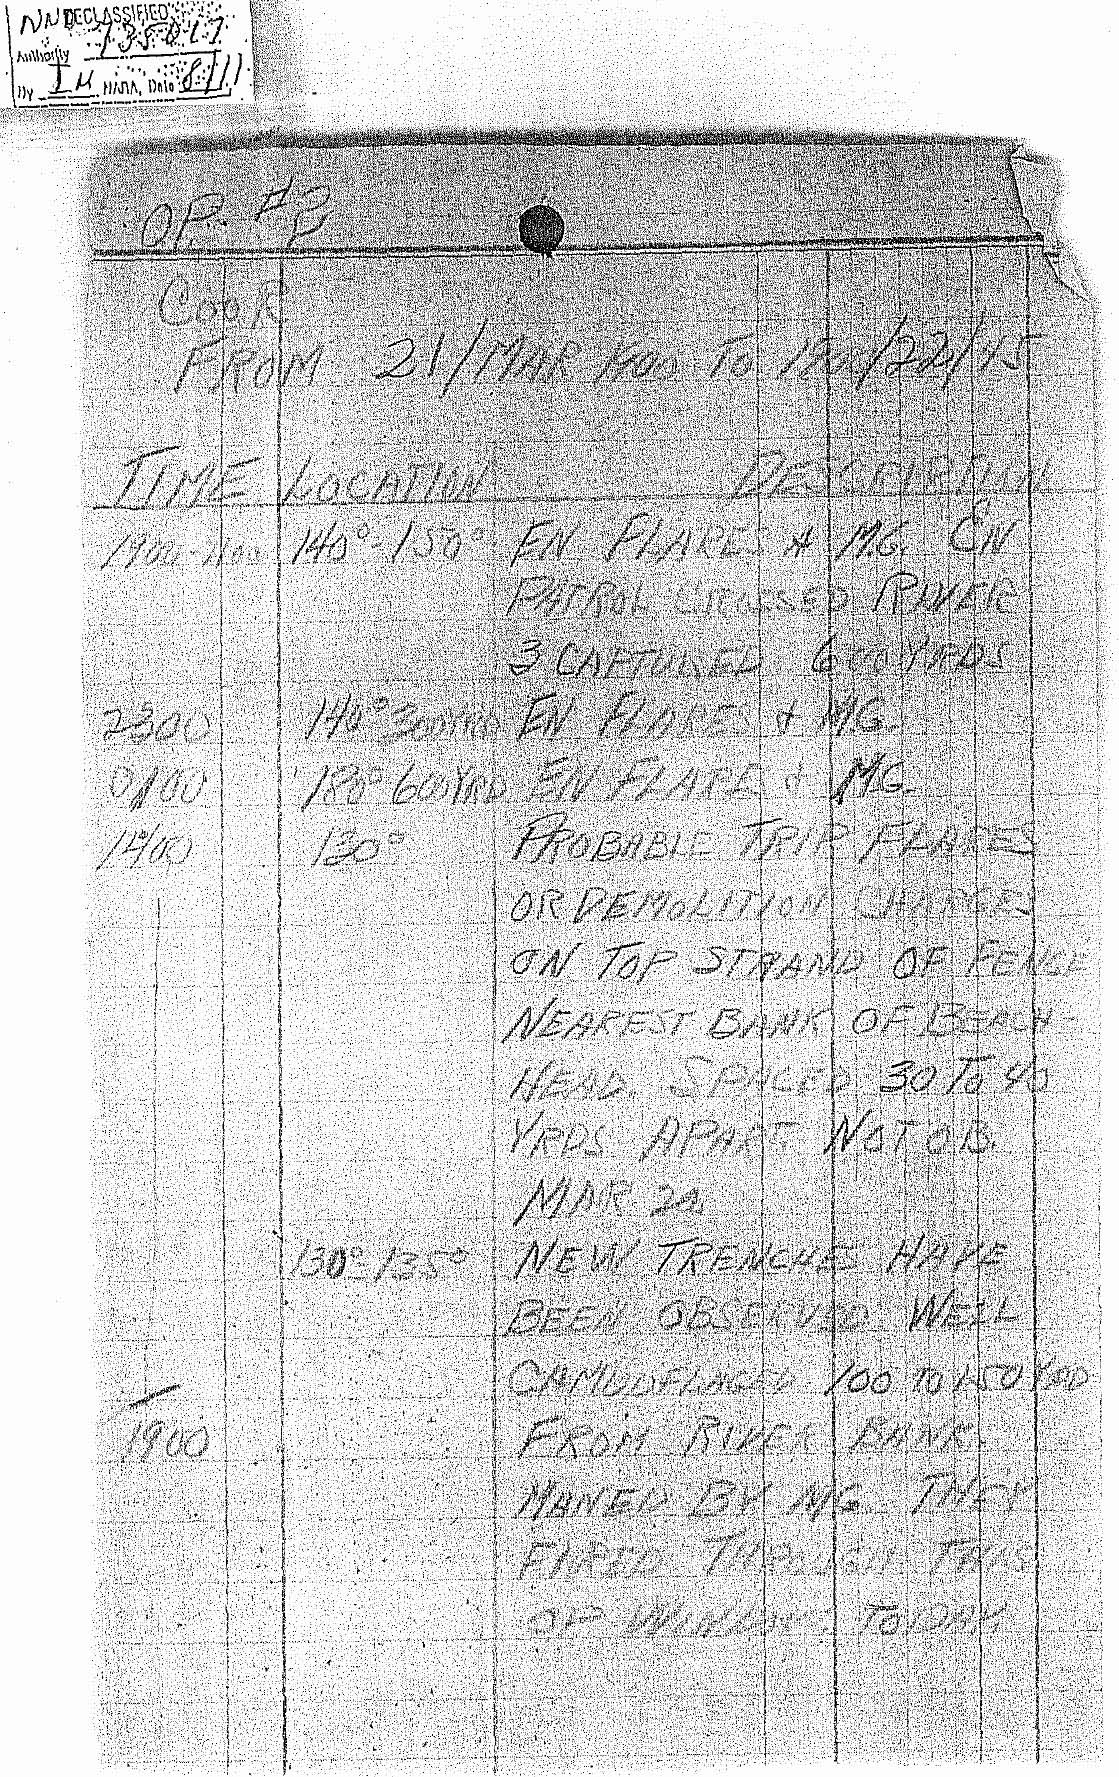 NND DECLASSIFIED
Authority 735017
By IM NARA, Date 8/11
OP. #2
COOK
FROM 21/MAR 1900 TO 1900/22/45
TIME LOCATION DESCRIPTION
1900 - 140°-150° EN FLARES & M.G. CN
PATROL CROSSED RIVER
3 CAPTURED 600 YRDS
2300 140° 300 YRD EN FLARES & MG.
0100 180° 600 YRD EN FLARE & M.G.
1400 130° PROBABLE TRIP FLARES
OR DEMOLITION CHARGES
ON TOP STRAND OF FENCE
NEAREST BANK OF BEACH-
HEAD. SPACED 30 TO 40
YRDS. APART NOT OB.
MAR 22.
130°-135° NEW TRENCHES HAVE
BEEN OBSERVED WELL
CAMUOFLAGED 100 TO 150 YRD
1900 FROM RIVER BANK.
MANED BY MG. THEY
FIRED THROUGH THIS
OP WINDOW. TODAY